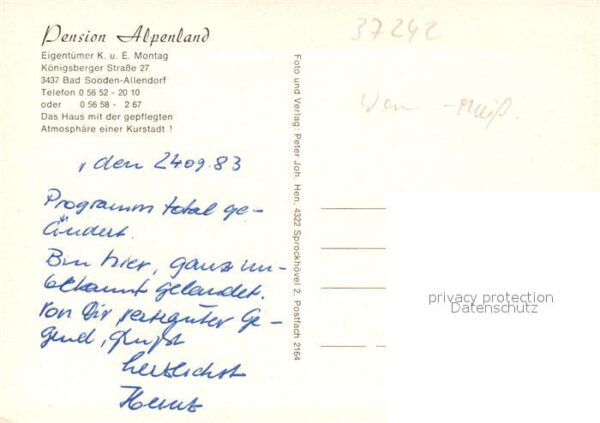 Pension Alpenland
Eigentümer K. u. E. Montag
Königsberger Straße 27
3437 Bad Sooden-Allendorf
Telefon 0 56 52 - 20 10
oder 0 56 58 - 2 67
Das Haus mit der gepflegten
Atmosphäre einer Kurstadt !
, den 2409.83
Programm total ge-
ändert.
Bin hier, ganz un-
bekannt gelandet.
Von Dir
Ge-
gend, grüßt
herzlichst
Foto und Verlag: Peter Joh. Hen, 4322 Sprockhövel 2, Postfach 2164
37242
privacy protection
Datenschutz